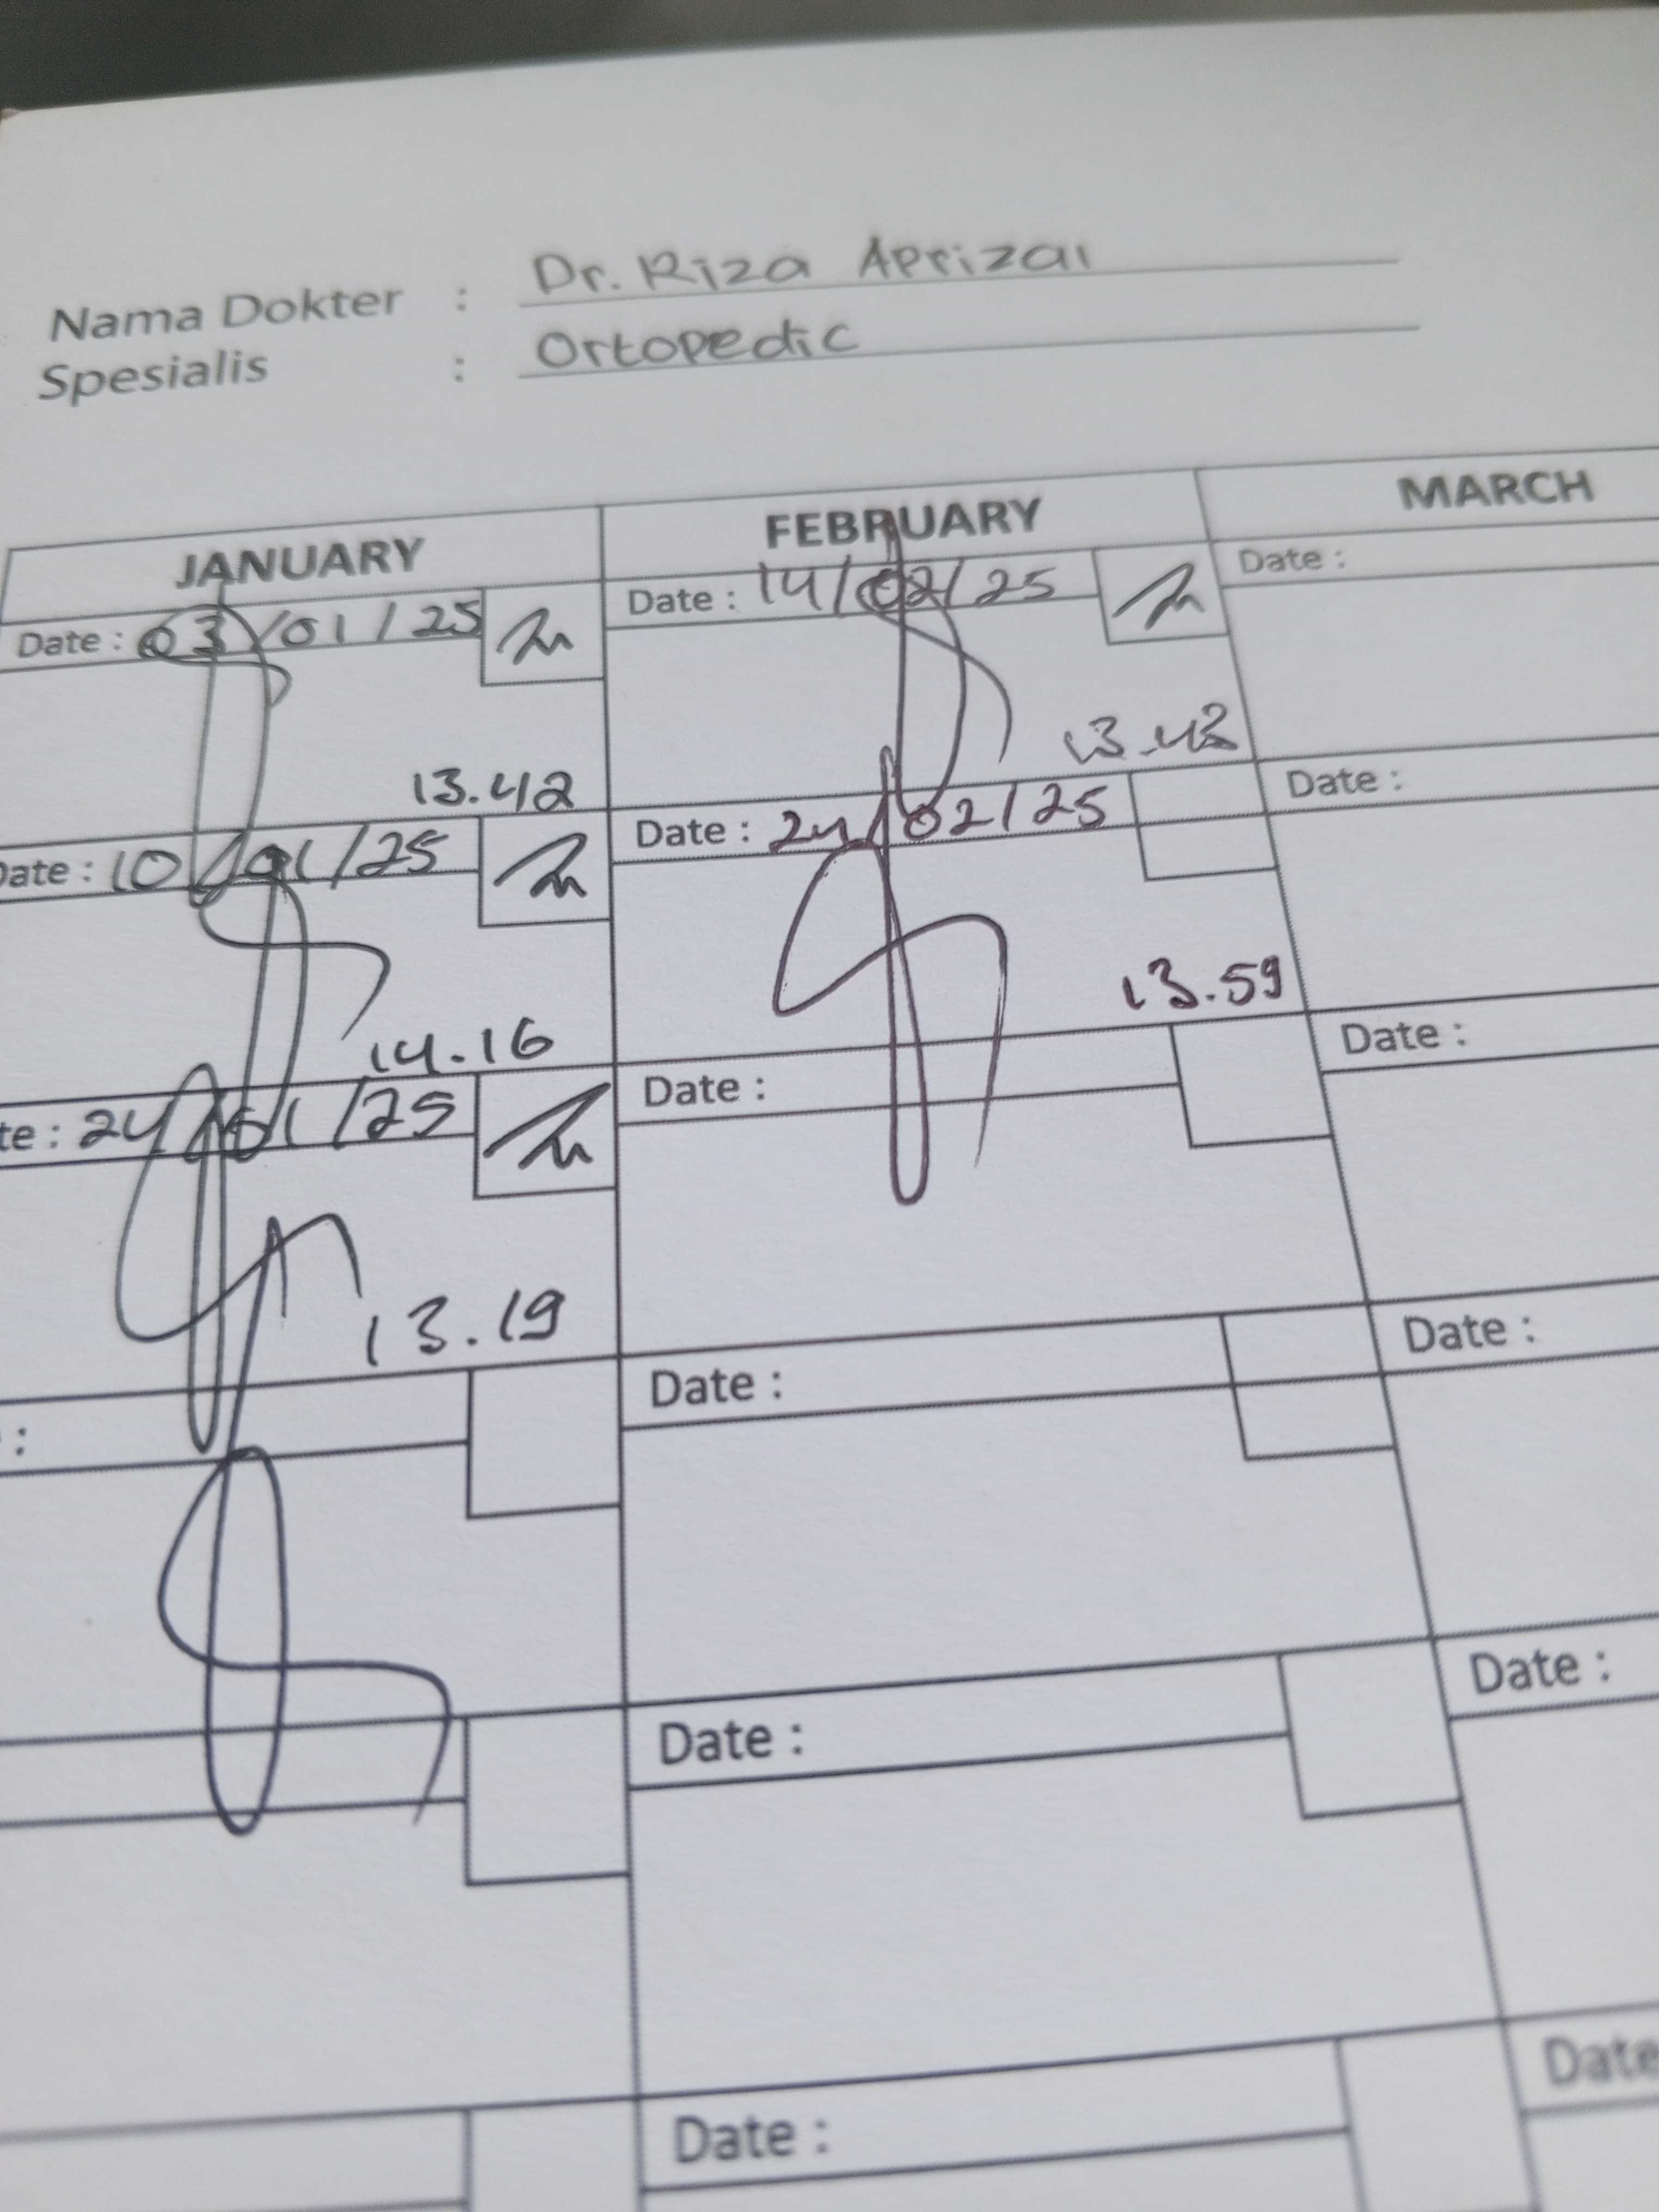 Nama Dokter : Dr. Riza Aprizal
Spesialis : Ortopedic
JANUARY FEBRUARY MARCH
Date : 03/01/25 Date : 14/02/25 Date :
13.42 13.43
Date : 10/01/25 Date : 24/02/25 Date :
14.16 13.59
te : 24/01/25 Date : Date :
13.19
: Date : Date :
Date : Date :
Date : Date